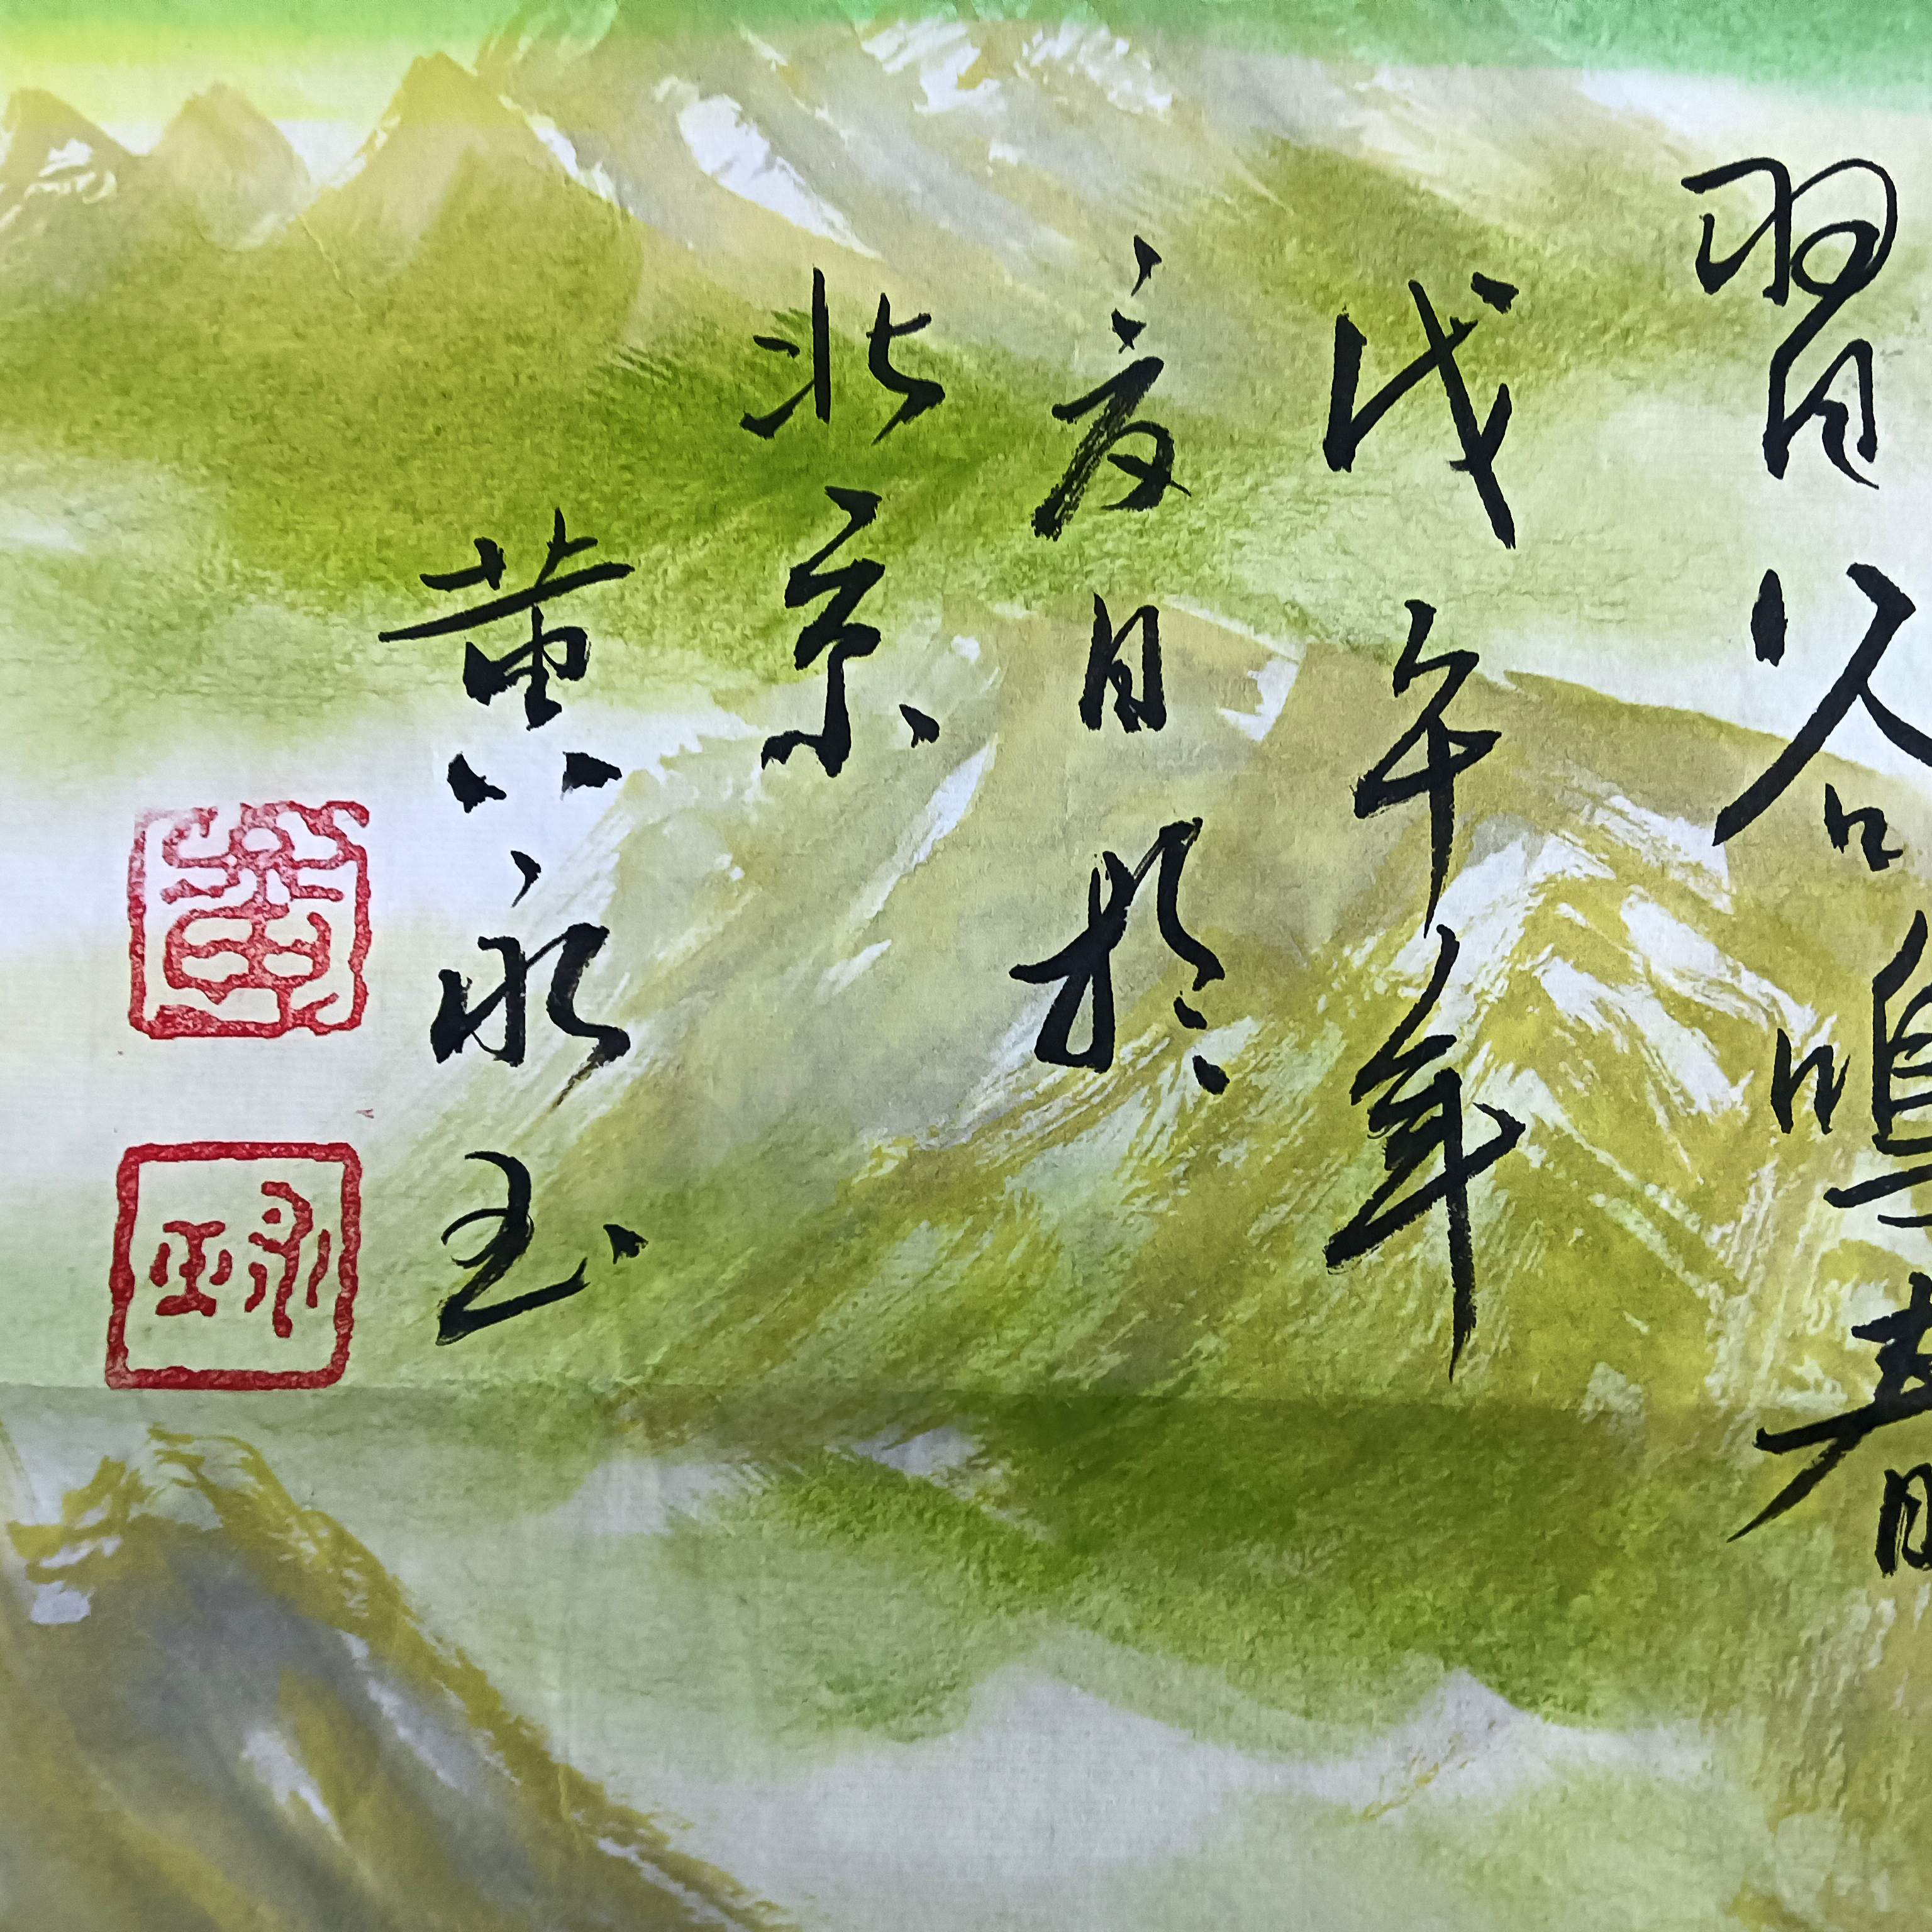 習谷鳴春
戊午年
夏日於
北京
黄永玉
黄
永玉